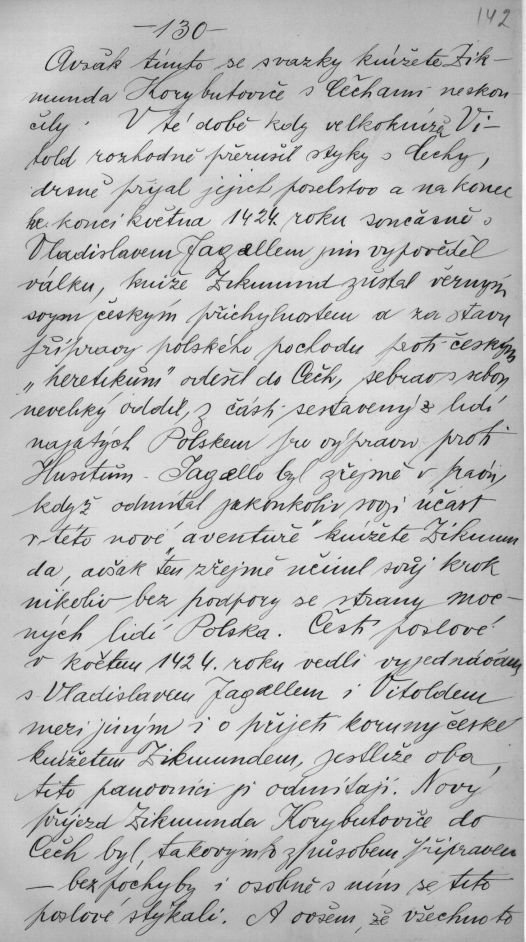 142
-130-
Avšak tímto se svazky knížete Zik-
munda Korybutoviče s Čechami neskon-
čily. V té době kdy velkokníže Vi-
told rozhodně přerušil styky s Čechy,
drsně přijal jejich poselstvo a na konec
ke konci května 1424 roku současně s
Vladislavem Jagellem jim vypověděl
válku, kníže Zikmund zůstal věrným
svým českým příchylnostem a za stavu
přípravy polského pochodu proti českým
"heretikům" odešel do Čech, sebrav s sebou
neveliký oddíl, z části sestavený z lidí
najatých Polskem pro výpravu proti
Husitům. Jagello byl zřejmě v právu,
když odmítal jakoukoliv svoji účast
v této nové "aventuře" knížete Zikmun
da, avšak ten zřejmě učinil svůj krok
nikoliv bez podpory se strany moc-
ných lidí Polska. Čeští poslové
v květnu 1424. roku vedli vyjednávání
s Vladislavem Jagellem i Vitoldem
mezi jiným i o přijetí koruny české
knížetem Zikmundem, jestliže oba
tito panovníci ji odmítají. Nový
příjezd Zikmunda Korybutoviče do
Čech byl, takovýmto způsobem připraven
- bez pochyby i osobně s ním se tito
poslové stýkali. A ovšem, že všechno to